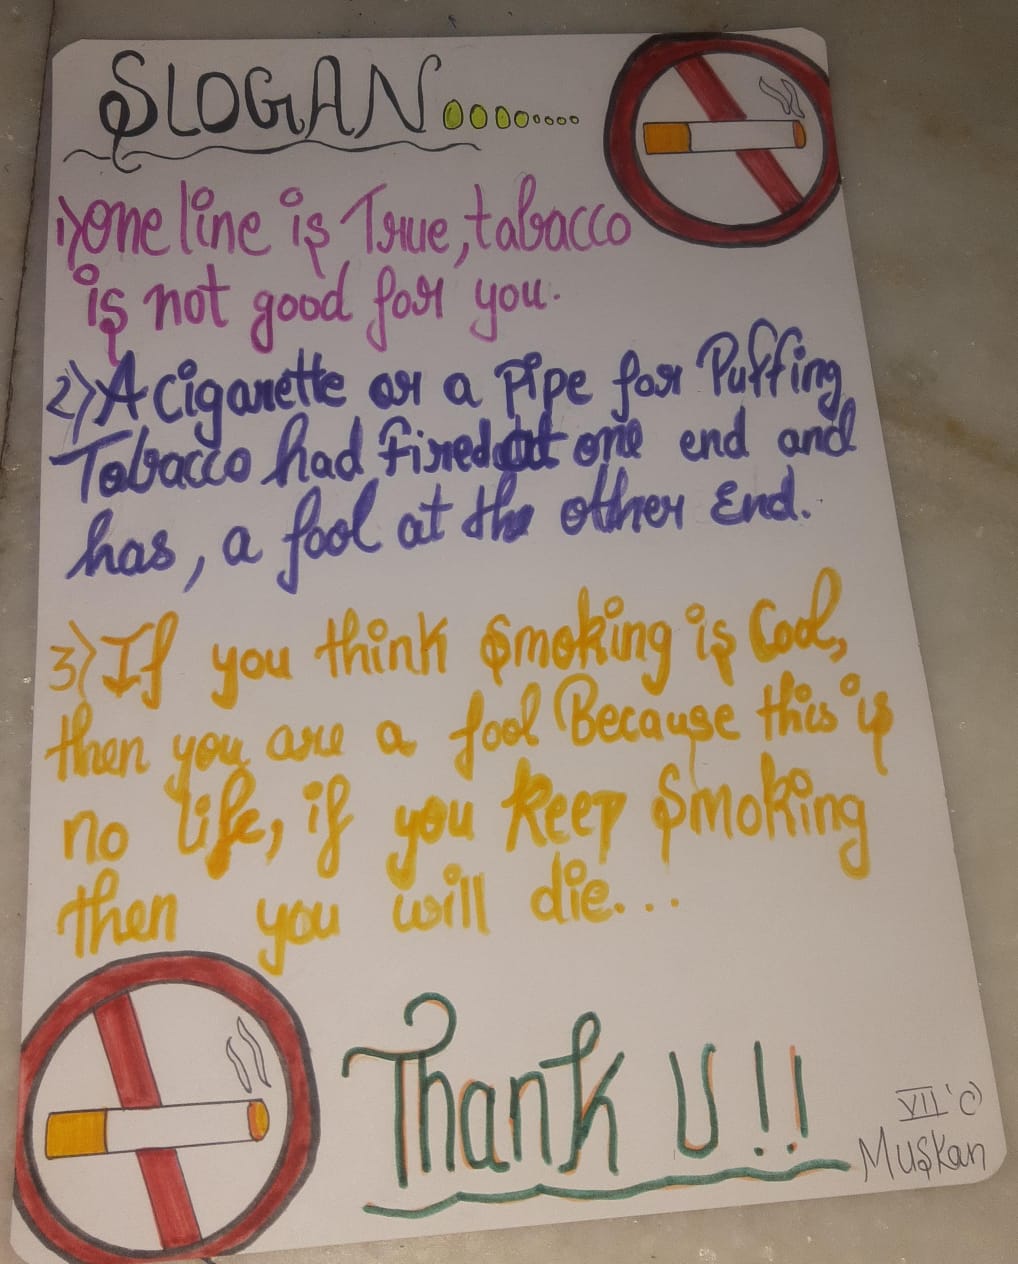 SLOGAN........
1) One line is True, tabacco
is not good for you.
2) A cigarette or a Pipe for Puffing
Tobacco had fired at one end and
has, a fool at the other End.
3) If you think Smoking is Cool,
then you are a fool Because this is
no life, if you keep Smoking
then you will die...
Thank U!!
VII 'C'
Muskan